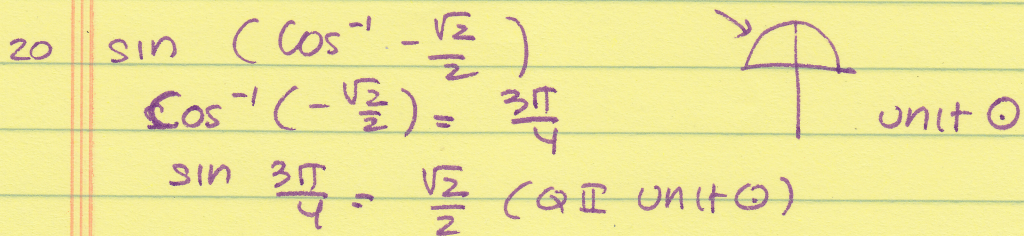 20 sin (Cos⁻¹ -√2/2)
Cos⁻¹ (-√2/2) = 3π/4
unit ⊙
sin 3π/4 = √2/2 (QII unit ⊙)